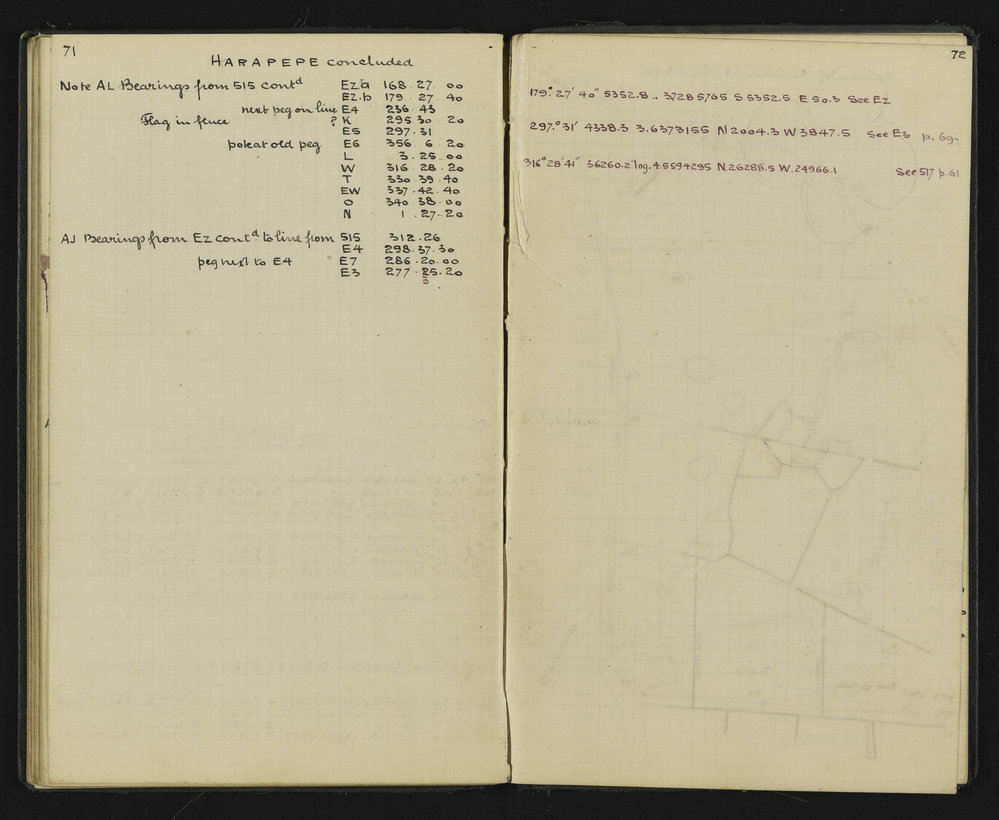 71
HARAPEPE concluded
Note AL Bearings from 515 contd Ez.a 168 . 27 . 00
Ez.b 179 . 27 . 40
next peg on line E4 236 . 43
Flag in fence ? K 295 30 . 20
E5 297 . 31
pole at old peg E6 356 6 . 20
L 3 . 25 . 00
W 316 . 28 . 20
T 330 . 39 . 40
EW 337 . 42 . 40
O 340 . 38 . 00
N 1 . 27 . 20
AJ Bearings from Ez contd to line from 515 312 . 26
E4 298 . 37 . 30
peg next to E4 E7 286 . 20 . 00
E3 277 . 25 . 20
3
72
179° 27' 40" 5352.8 .. 3728 5765 S 5352.5 E 50.3 See Ez
297.° 31' 4338.3 3.6373155 N 2004.3 W 3847.5 See E3 p. 69
316° 28' 41" 36260.2 log. 4.5594295 N. 26288.5 W. 24966.1 See 517 p. 61